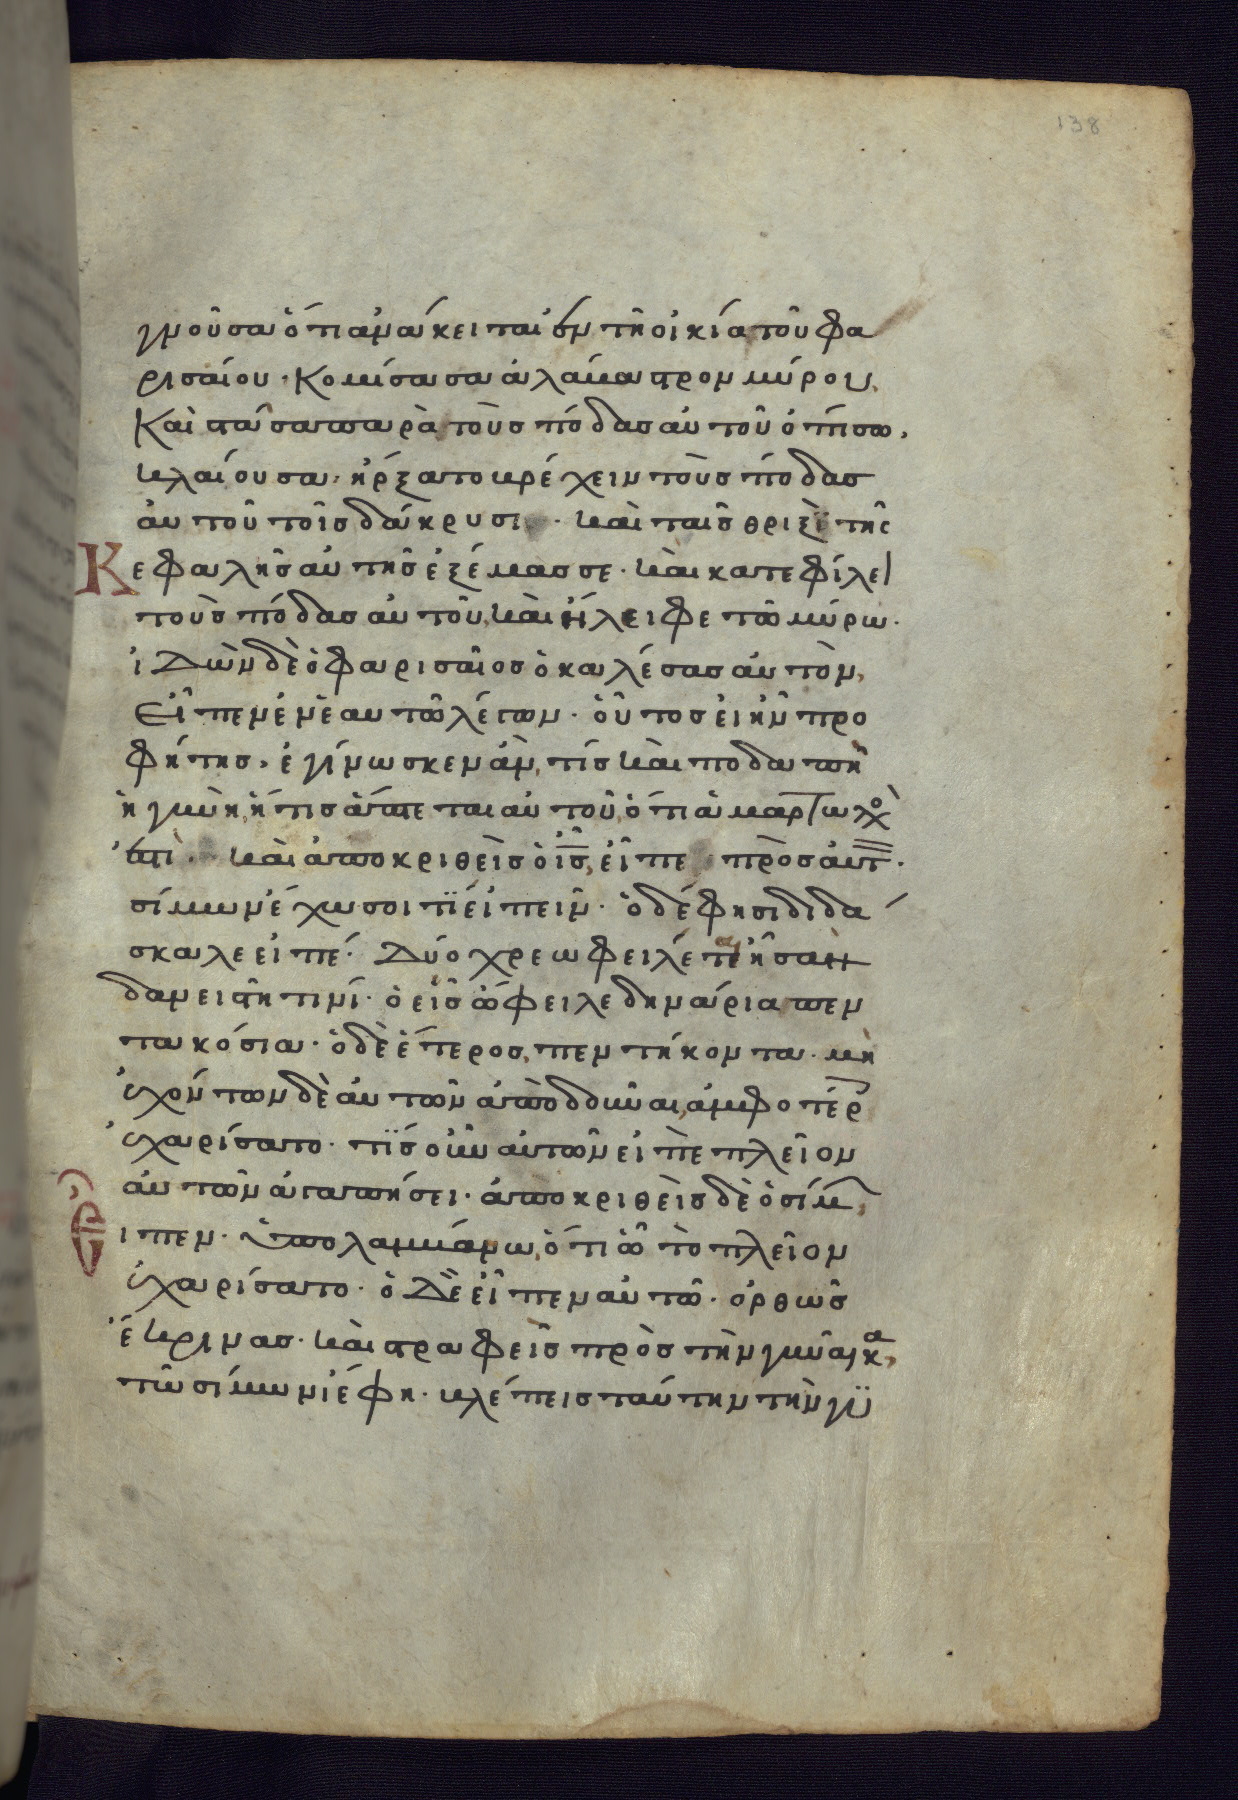 138
γνοῦσα ὅτι ἀνάκειται ἐν τῆ οἰκία τοῦ φα
ρισαίου· Κομίσασα ἀλάβαστρον μύρου,
Καὶ στάσα παρὰ τοὺς πόδας αὐτοῦ ὀπίσω,
κλαίουσα, ἤρξατο βρέχειν τοὺς πόδας
αὐτοῦ τοῖς δάκρυσι· καὶ ταῖς θριξὶ τῆς
Κεφαλῆς αὐτῆς ἐξέμασσε· καὶ κατεφίλει
τοὺς πόδας αὐτοῦ, καὶ ἤλειφε τῶ μύρω·
ἰδὼν δὲ ὁ φαρισαῖος ὁ καλέσας αὐτὸν,
Εἶπεν ἐν ἑαυτῶ λέγων· οὗτος εἰ ἦν προ
φήτης, ἐγίνωσκεν ἂν, τίς καὶ ποδαπὴ
ἡ γυνὴ, ἥτις ἅπτεται αὐτοῦ, ὅτι ἁμαρτωλὸ
ἐστὶ· καὶ ἀποκριθεὶς ὁ ι̅ς̅, εἶπε πρὸς αὐτ·
σίμων ἔχω σοι τὶ εἰπεῖν· ὁ δέ φησι διδά
σκαλε εἰπέ· Δύο χρεωφειλέται ἦσαν
δανειστῆ τινί· ὁ εἷς ὤφειλε δηνάρια πεν
τακόσια· ὁ δὲ ἕτερος, πεντήκοντα· μὴ
ἐχόντων δὲ αὐτῶν ἀποδοῦναι, ἀμφοτέρ
ἐχαρίσατο· τίς οὖν αὐτῶν εἰπὲ πλεῖον
αὐτῶν ἀγαπήσει· ἀποκριθεὶς δὲ ὁ σίμ,
Εἶπεν· ὑπολαμβάνω, ὅτι ὧ τὸ πλεῖον
ἐχαρίσατο· ὁ δὲ εἶπεν αὐτῶ· ὀρθῶς
ἔκρινας· καὶ στραφεὶς πρὸς τὴν γυναῖκα,
τῶ σίμωνι ἔφη· βλέπεις ταύτην τὴν γυ